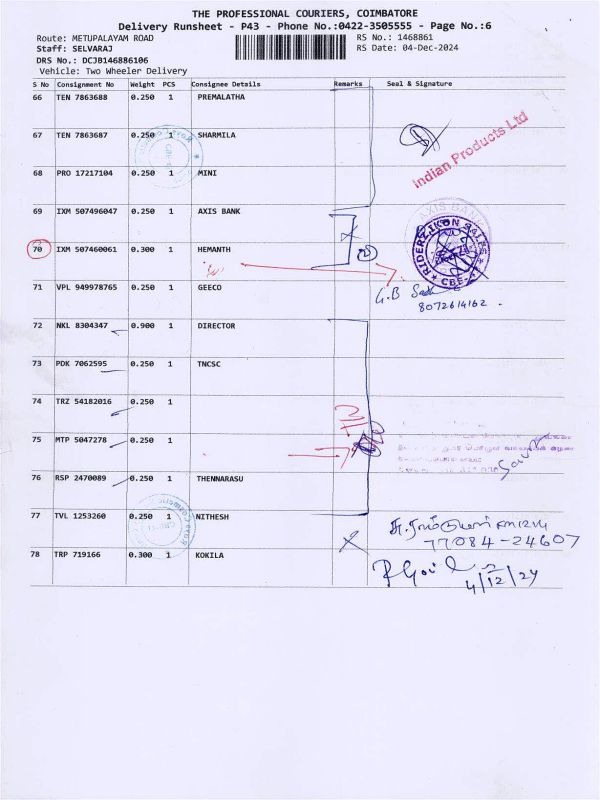 THE PROFESSIONAL COURIERS, COIMBATORE
Delivery Runsheet - P43 - Phone No.:0422-3505555 - Page No.:6
Route: METUPALAYAM ROAD RS No.: 1468861
Staff: SELVARAJ RS Date: 04-Dec-2024
DRS No.: DCJB146886106
Vehicle: Two Wheeler Delivery
S No Consignment No Weight PCS Consignee Details Remarks Seal & Signature
66 TEN 7863688 0.250 1 PREMALATHA
67 TEN 7863687 0.250 1 SHARMILA
Indian Products Ltd
68 PRO 17217104 0.250 1 MINI
69 IXM 507496047 0.250 1 AXIS BANK
AXIS BANK
70 IXM 507460061 0.300 1 HEMANTH
RIDERZ IKON SALES
CBE-4
71 VPL 949978765 0.250 1 GEECO
G.B
8072614162
72 NKL 8304347 0.900 1 DIRECTOR
73 PDK 7062595 0.250 1 TNCSC
74 TRZ 54182016 0.250 1
75 MTP 5047278 0.250 1
76 RSP 2470089 0.250 1 THENNARASU
77 TVL 1253260 0.250 1 NITHESH
77084-24607
78 TRP 719166 0.300 1 KOKILA
4/12/24